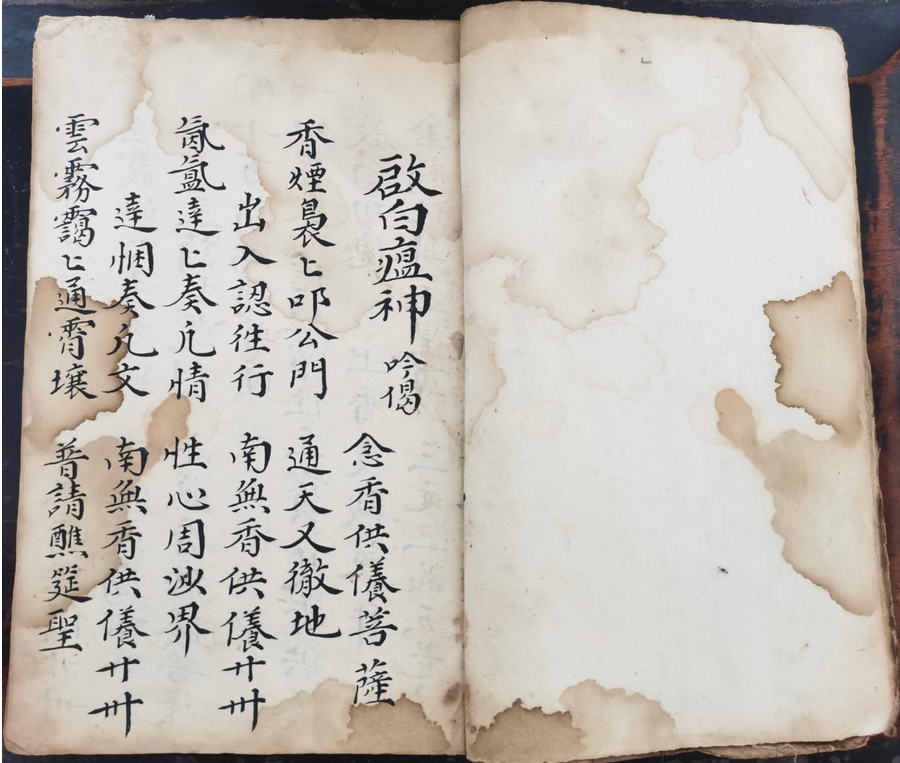 啟白瘟神 吟偈
念香供儀菩薩
香煙裊〻叩公門 通天又徹地
出入認往行 南無香供儀廾卅
氤氳達〻奏凡情 性心周沙界
達悃奏凡文 南無香供儀廾卅
雲霧靄〻通霄壤 普請醮筵聖